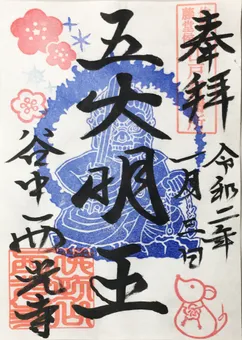 奉拝
令和二年
一月三日
五大明王
谷中西光寺